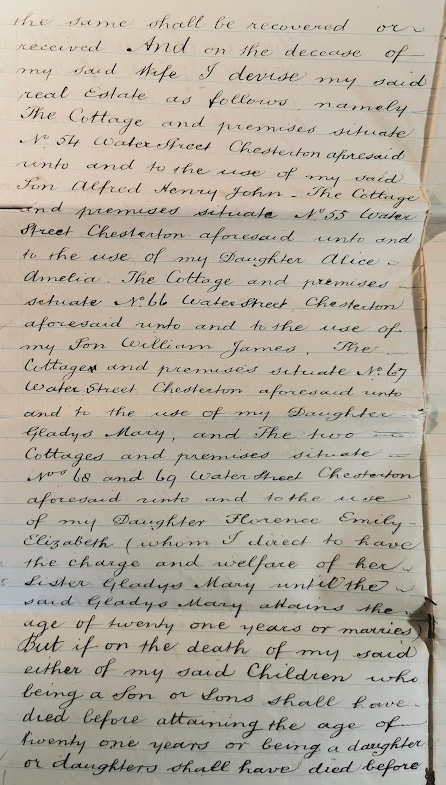 the same shall be recovered or
received And on the decease of
my said Wife I devise my said
real Estate as follows namely
The Cottage and premises situate
No 54 Water Street Chesterton aforesaid
unto and to the use of my said
Son Alfred Henry John - The Cottage
and premises situate No 55 Water
Street Chesterton aforesaid unto and
to the use of my Daughter Alice
Amelia. The Cottage and premises
situate No 66 Water Street Chesterton
aforesaid unto and to the use of
my Son William James. The
Cottage and premises situate No 67
Water Street Chesterton aforesaid unto
and to the use of my Daughter
Gladys Mary, and The two
Cottages and premises situate
Nos 68 and 69 Water Street Chesterton
aforesaid unto and to the use
of my Daughter Florence Emily
Elizabeth (whom I direct to have
the charge and welfare of her
Sister Gladys Mary until the
said Gladys Mary attains the
age of twenty one years or marries)
But if on the death of my said
either of my said Children who
being a Son or Sons shall have
died before attaining the age of
twenty one years or being a daughter
or daughters shall have died before